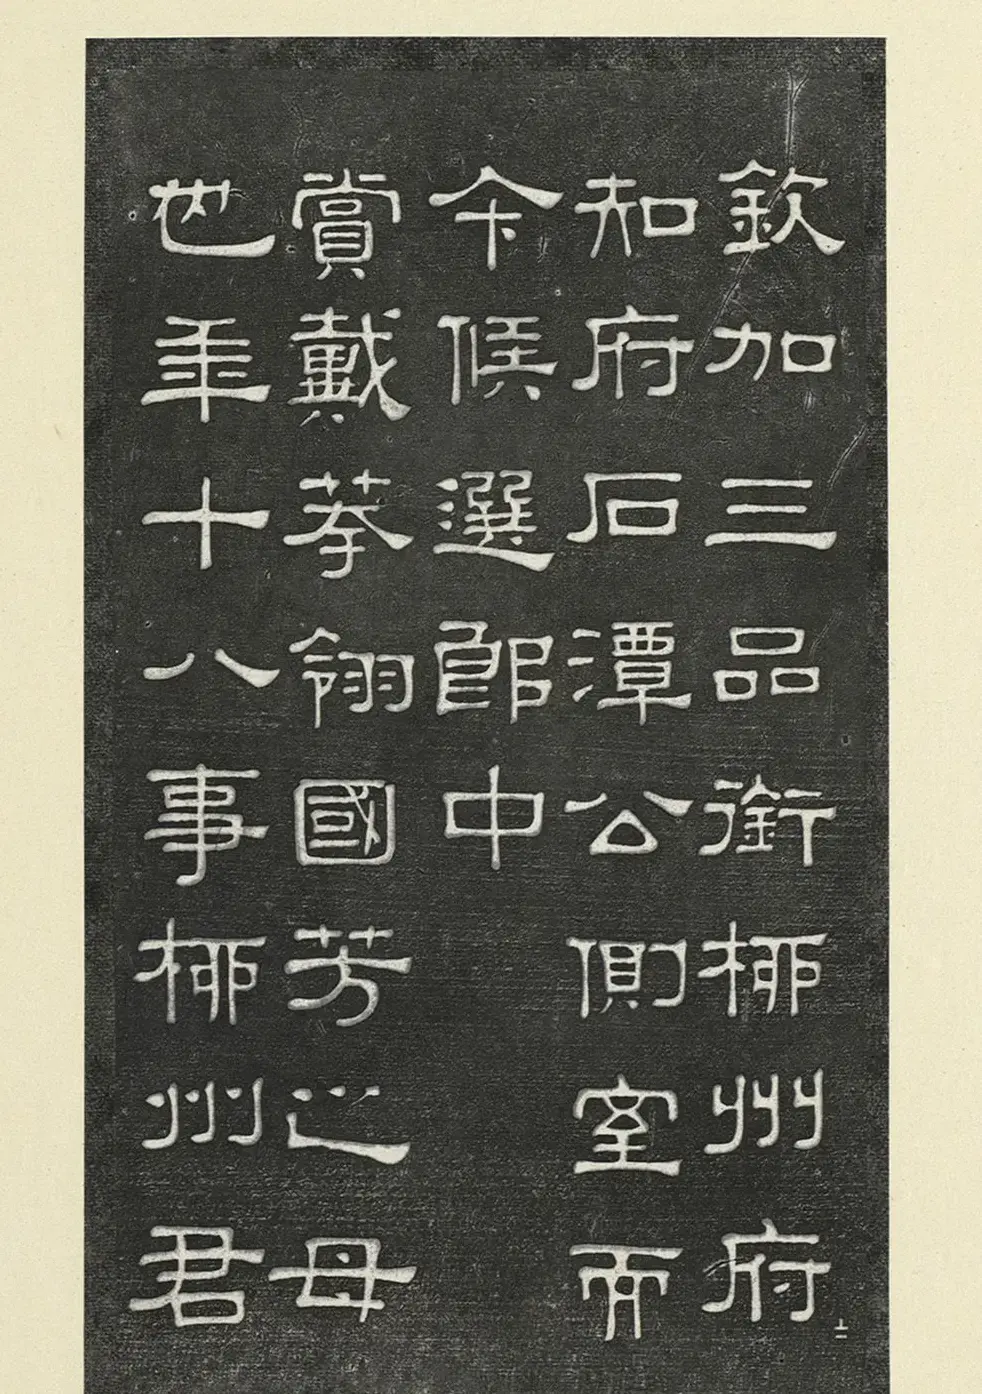 欽加三品銜柳州府
知府石潭公側室而
今候選郎中
賞戴孝翎國芳之母
也年十八事柳州君
十二